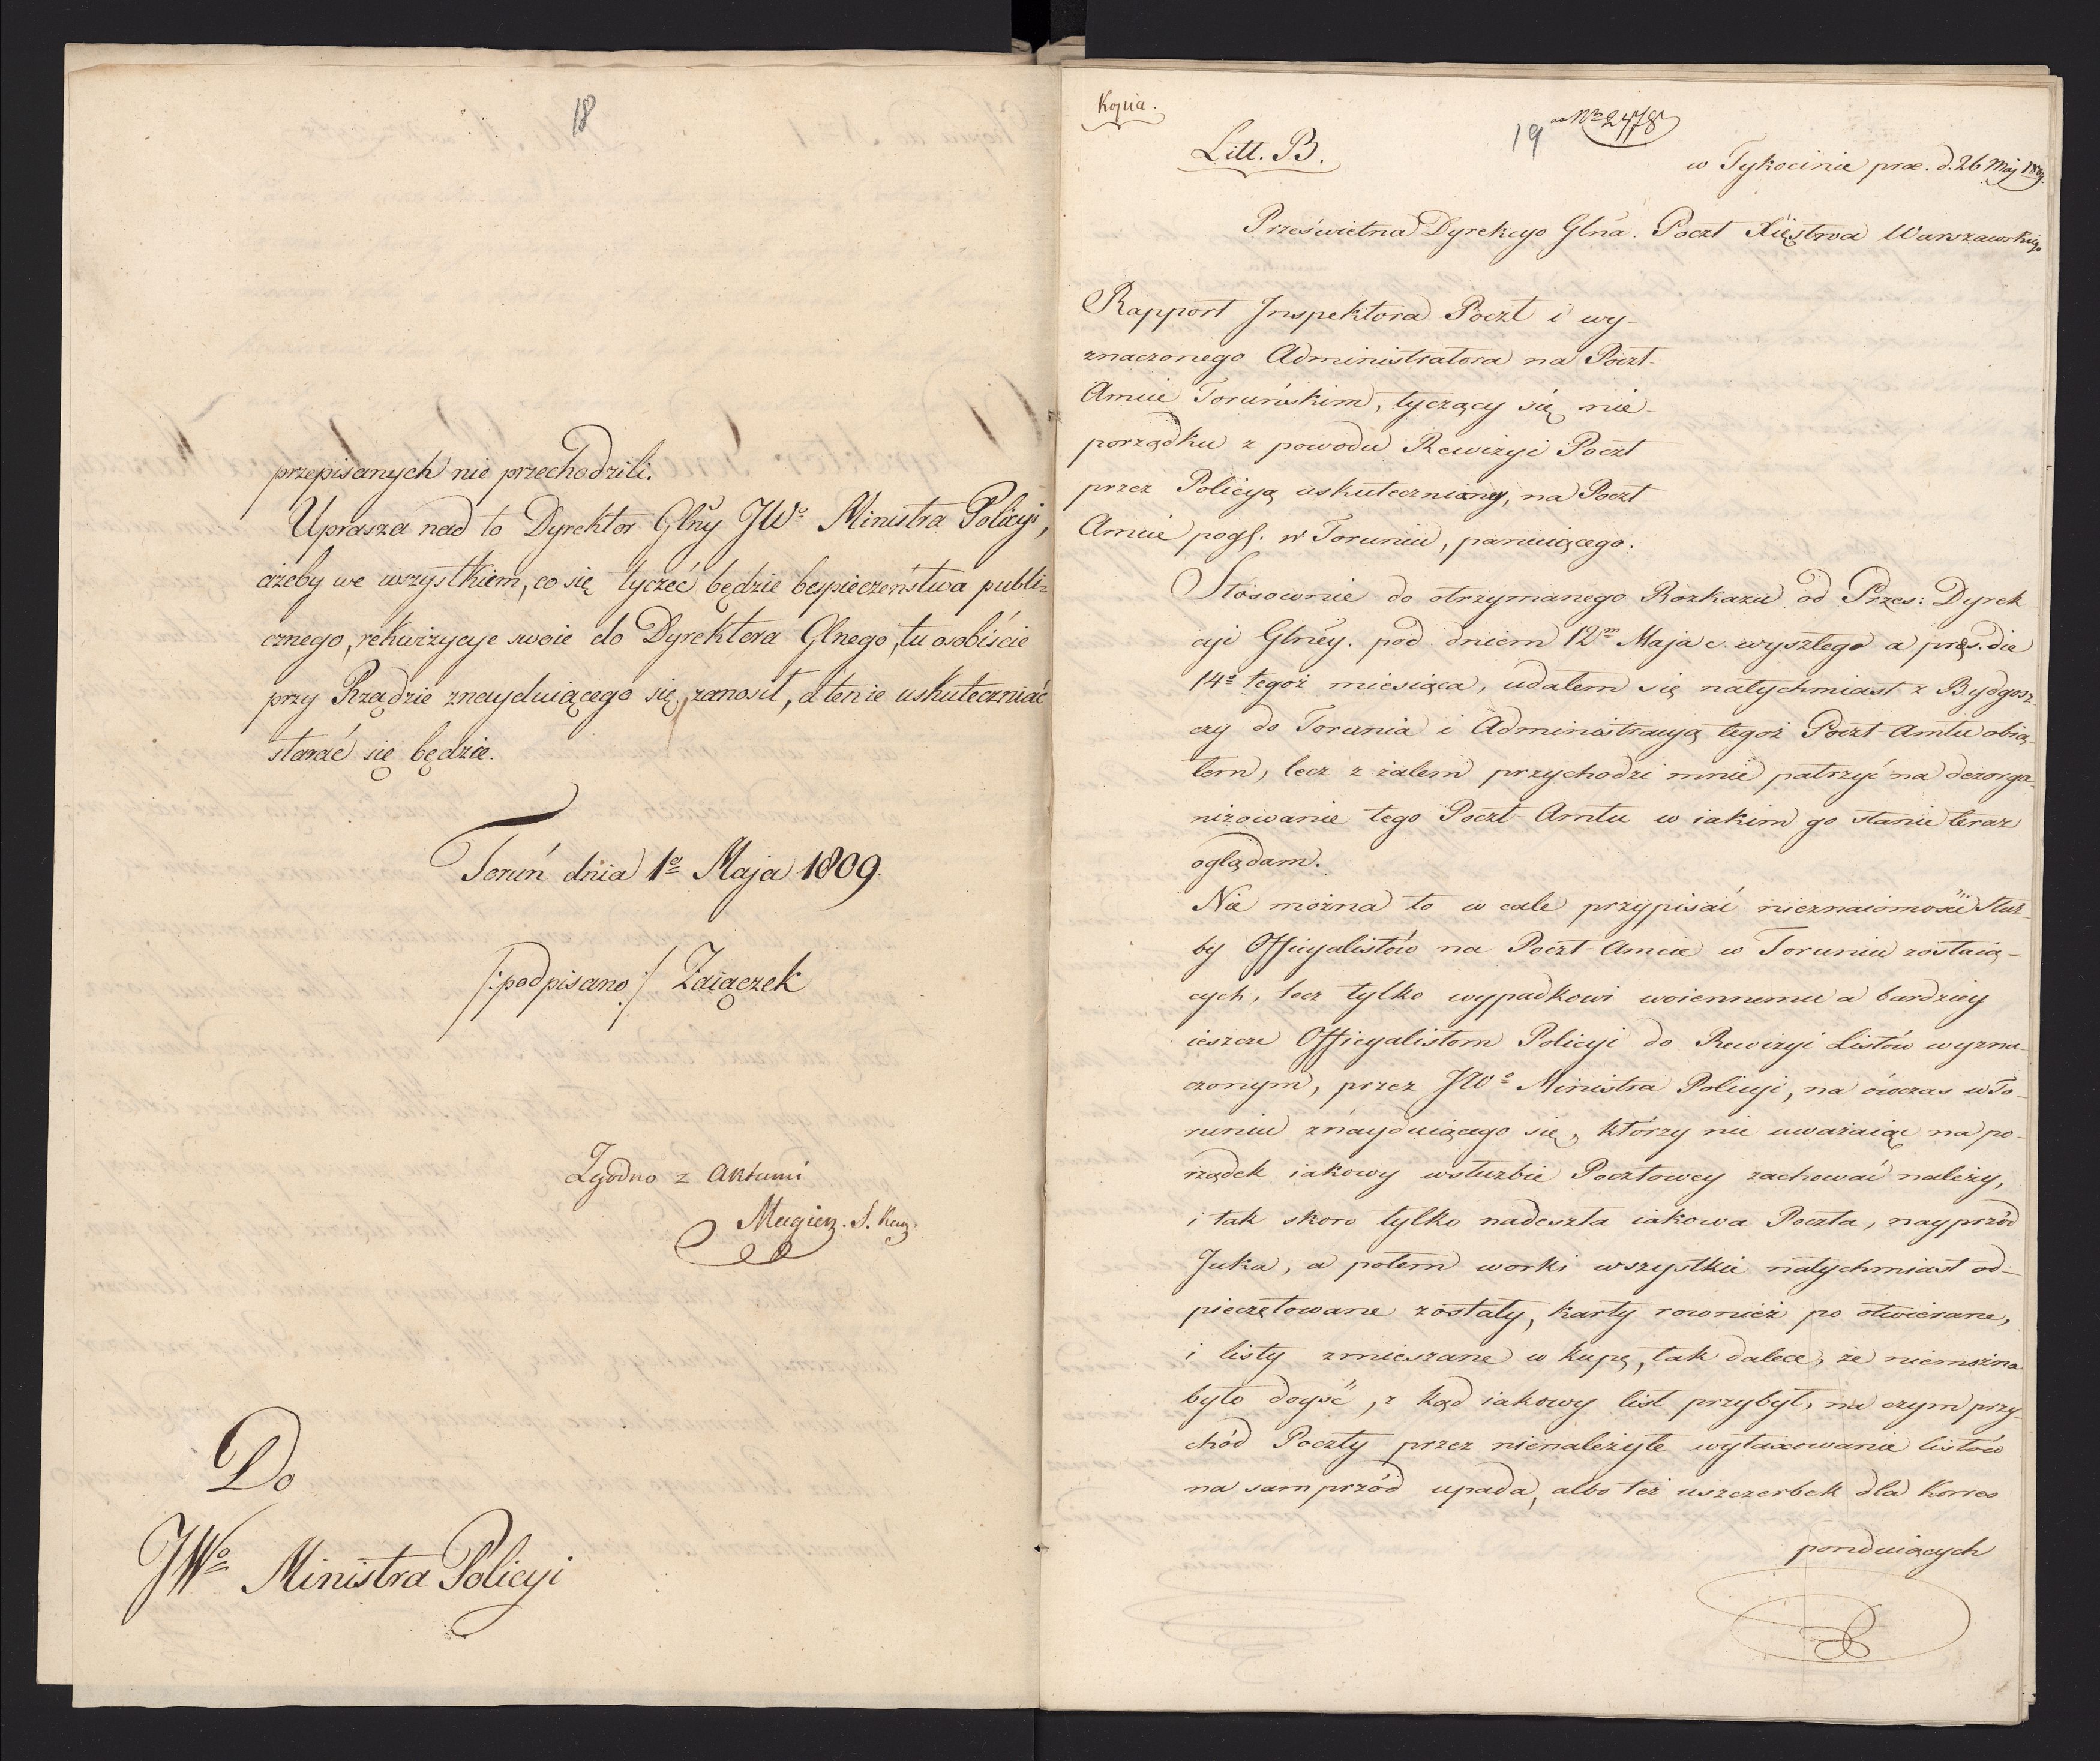 18
przepisanych nie przechodzili.
Uprasza nad to Dyrektor Glny JWo Ministra Policyi,
ażeby we wszystkiem, co się tyczeć będzie bespieczeństwa publi=
cznego, rekwizycye swoie do Dyrektora Glnego, tu osobiście
przy Rządzie znayduiącego się, zanosił, a ten ie uskuteczniać
starać się będzie.
Toruń dnia 1o Maja 1809.
/:podpisano:/ Zaiączek
Zgodno z Aktami
Do
JWo Ministra Policyi
Kopia.
19 ad Nrm 2478
Litt. B.
w Tykocinie prae. d. 26 Maj 1809.
Prześwietna Dyrekcyo Glna. Poczt Xięstwa Warszawskiego
Rapport Inspektora Poczt i wy-
znaczonego Administratora na Poczt-
Amcie Toruńskim, tyczący się nie-
porządku z powodu Rewizyi Poczt
przez Policyą uskutecznioney, na Poczt
Amcie pogr. w Toruniu, panuiącego.
Stosownie do otrzymanego Rozkazu od Przes: Dyrek-
cyi Glney. pod dniem 12m Maja c. wyszłego a pręs. die
14o tegoż miesiąca, udałem się natychmiast z Bydgosz-
czy do Torunia i Administracyą tegoż Poczt-Amtu obią-
łem, lecz z żalem przychodzi mnie patrzyć na dezorga-
nizowanie tego Poczt-Amtu w iakim go stanie teraz
oglądam.
Nie można to w cale przypisać nieznaiomości służ-
by Officyalistów na Poczt-Amcie w Toruniu zostaią-
cych, lecz tylko wypadkowi woiennemu a bardziey
ieszcze Officyalistom Policyi do Rewizyi Listów wyzna-
czonym, przez JWo Ministra Policyi, na ówczas w To-
runiu znayduiącego się, którzy nie uważaiąc na po-
rządek iakowy w służbie Pocztowey zachować należy,
i tak skoro tylko nadeszła iakowa Poczta, nayprzód
Juka, a potem worki wszystkie natychmiast od-
pieczętowane zostały, karty rownież po otwierane,
i listy zmieszane w kupę, tak dalece, że niemożna
było doyść, z kąd iakowy list przybył, na czym przy-
chód Poczty przez nienależyte wytaxowanie listów
na sam przód upada, albo też uszczerbek dla Korres
ponduiących